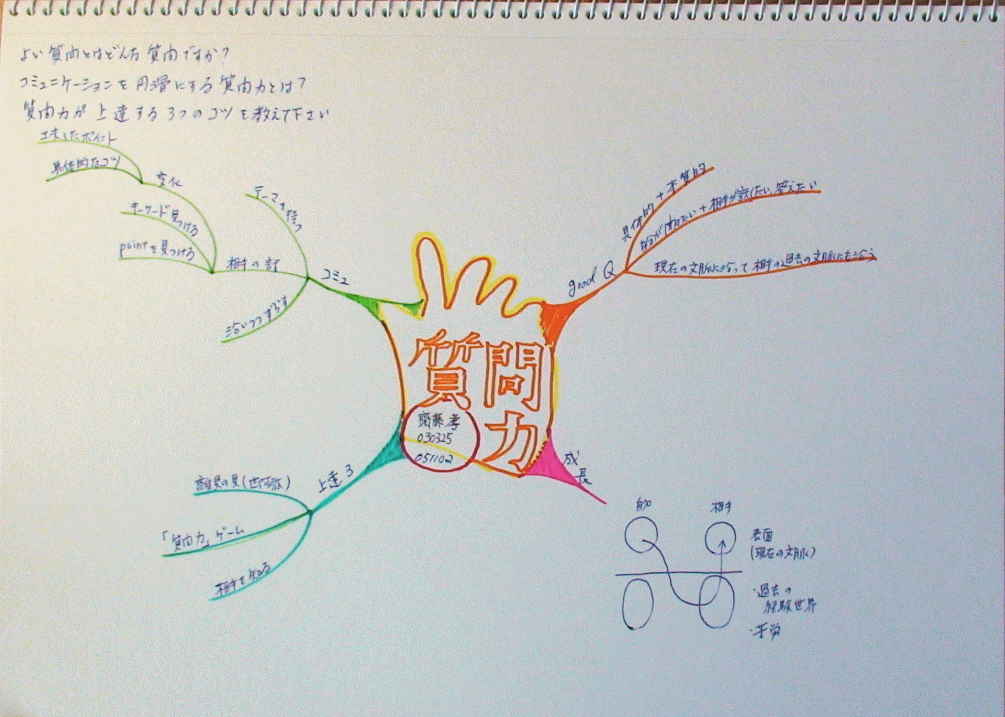 よい質問とはどんな質問ですか?
コミュニケーションを円滑にする質問力とは?
質問力が上達する3つのコツを教えて下さい
工夫したポイント
具体的なコツ
変化
キーワード見つける
pointを見つける
相手の話
テーマを持つ
沿いつつずらす
コミュ
good Q
具体的+本質的
自分が聞きたい+相手が話したい、答えたい
現在の文脈に沿って相手の過去の文脈にも沿う
質問力
齋藤 孝
030325
051102
上達3
離見の見(世阿弥)
「質問力」ゲーム
相手を知る
成長
自分
相手
表面
(現在の文脈)
・過去の
経験世界
・苦労